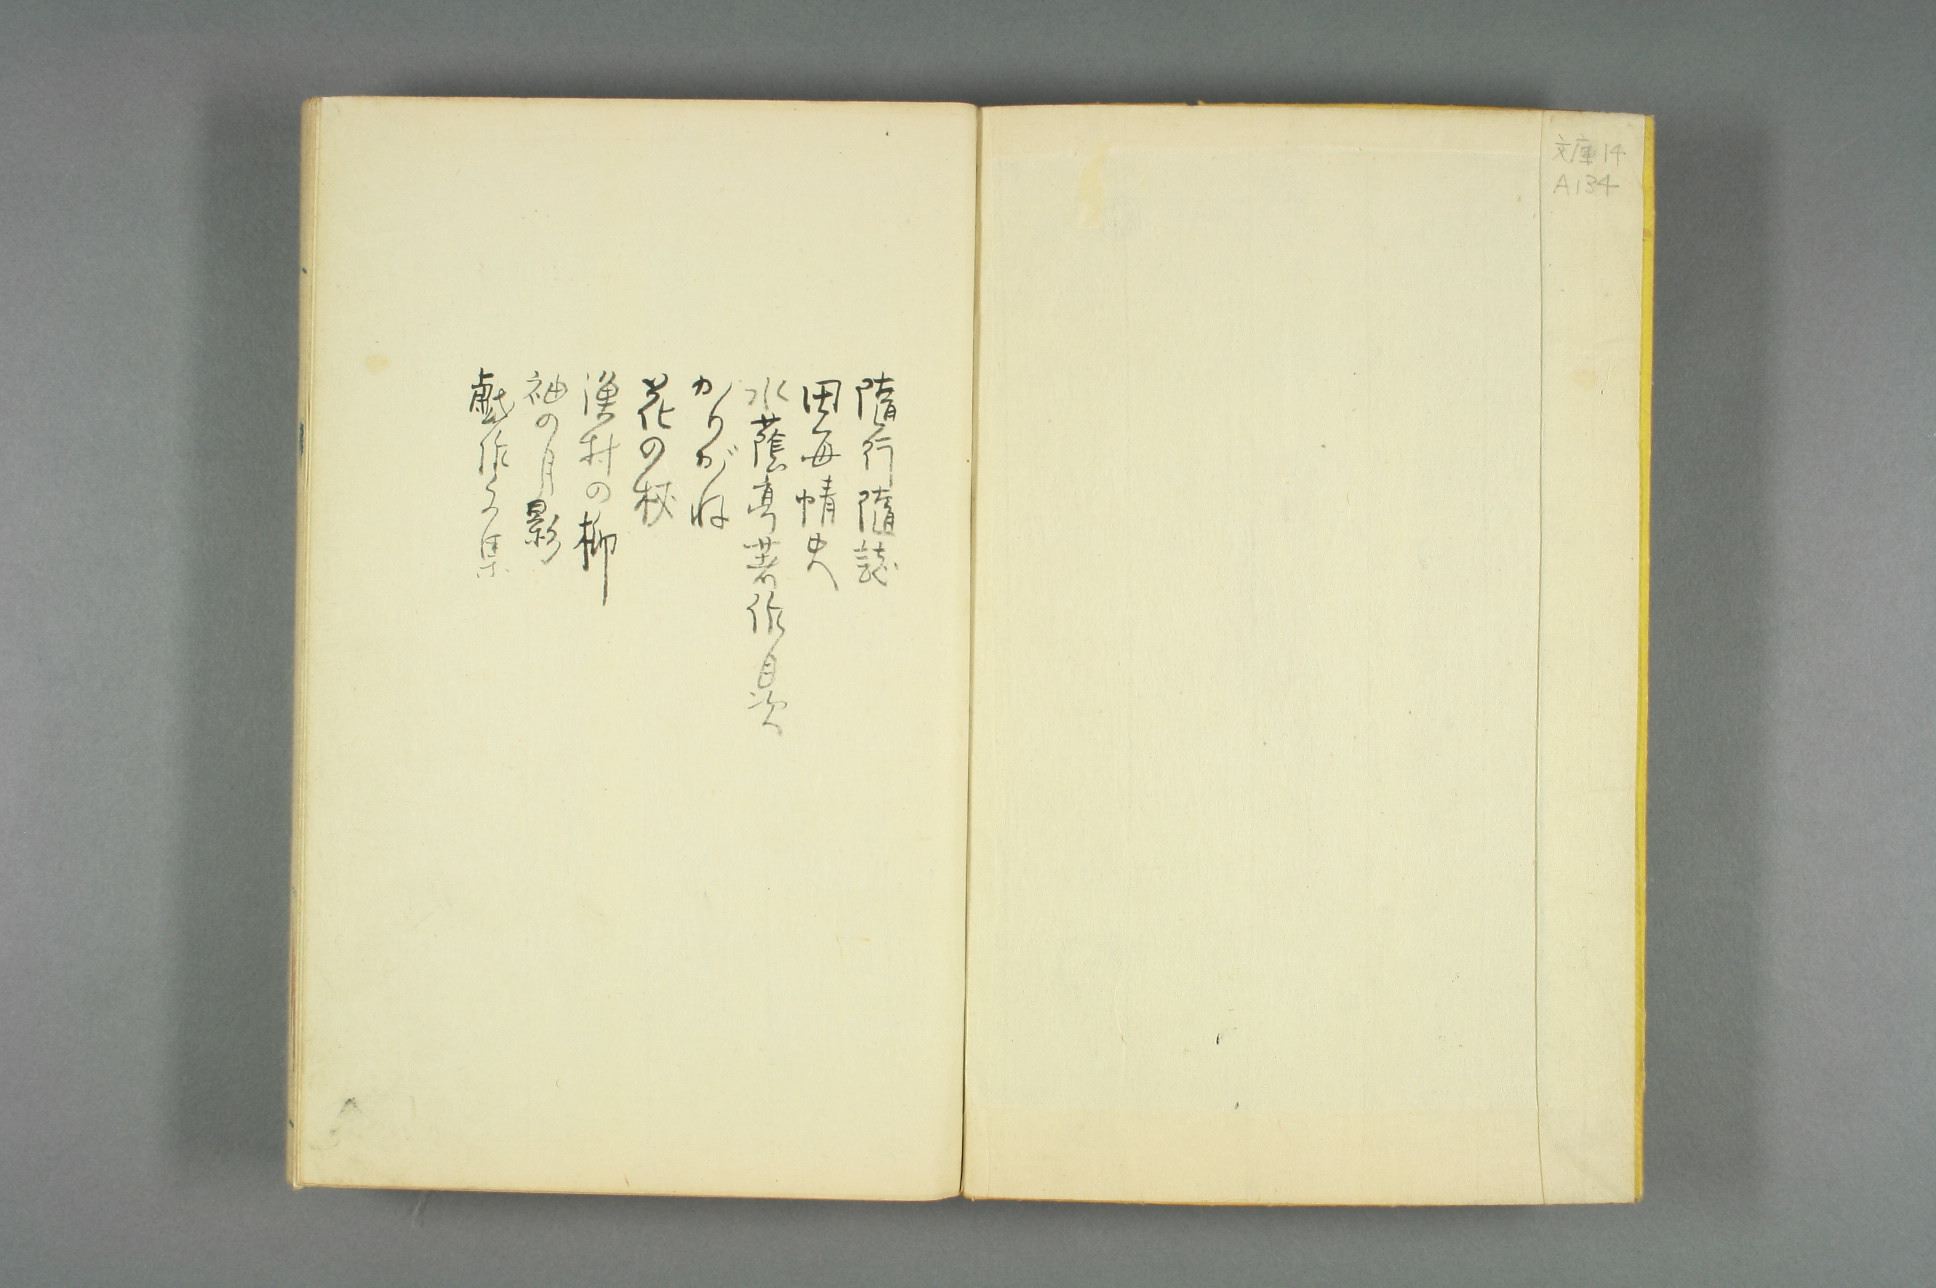 文庫14
A134
隨行隨誌
田毎情史
水蔭亭著作目次
かりがね
花の
漁村の柳
袖の月影
戯作文集